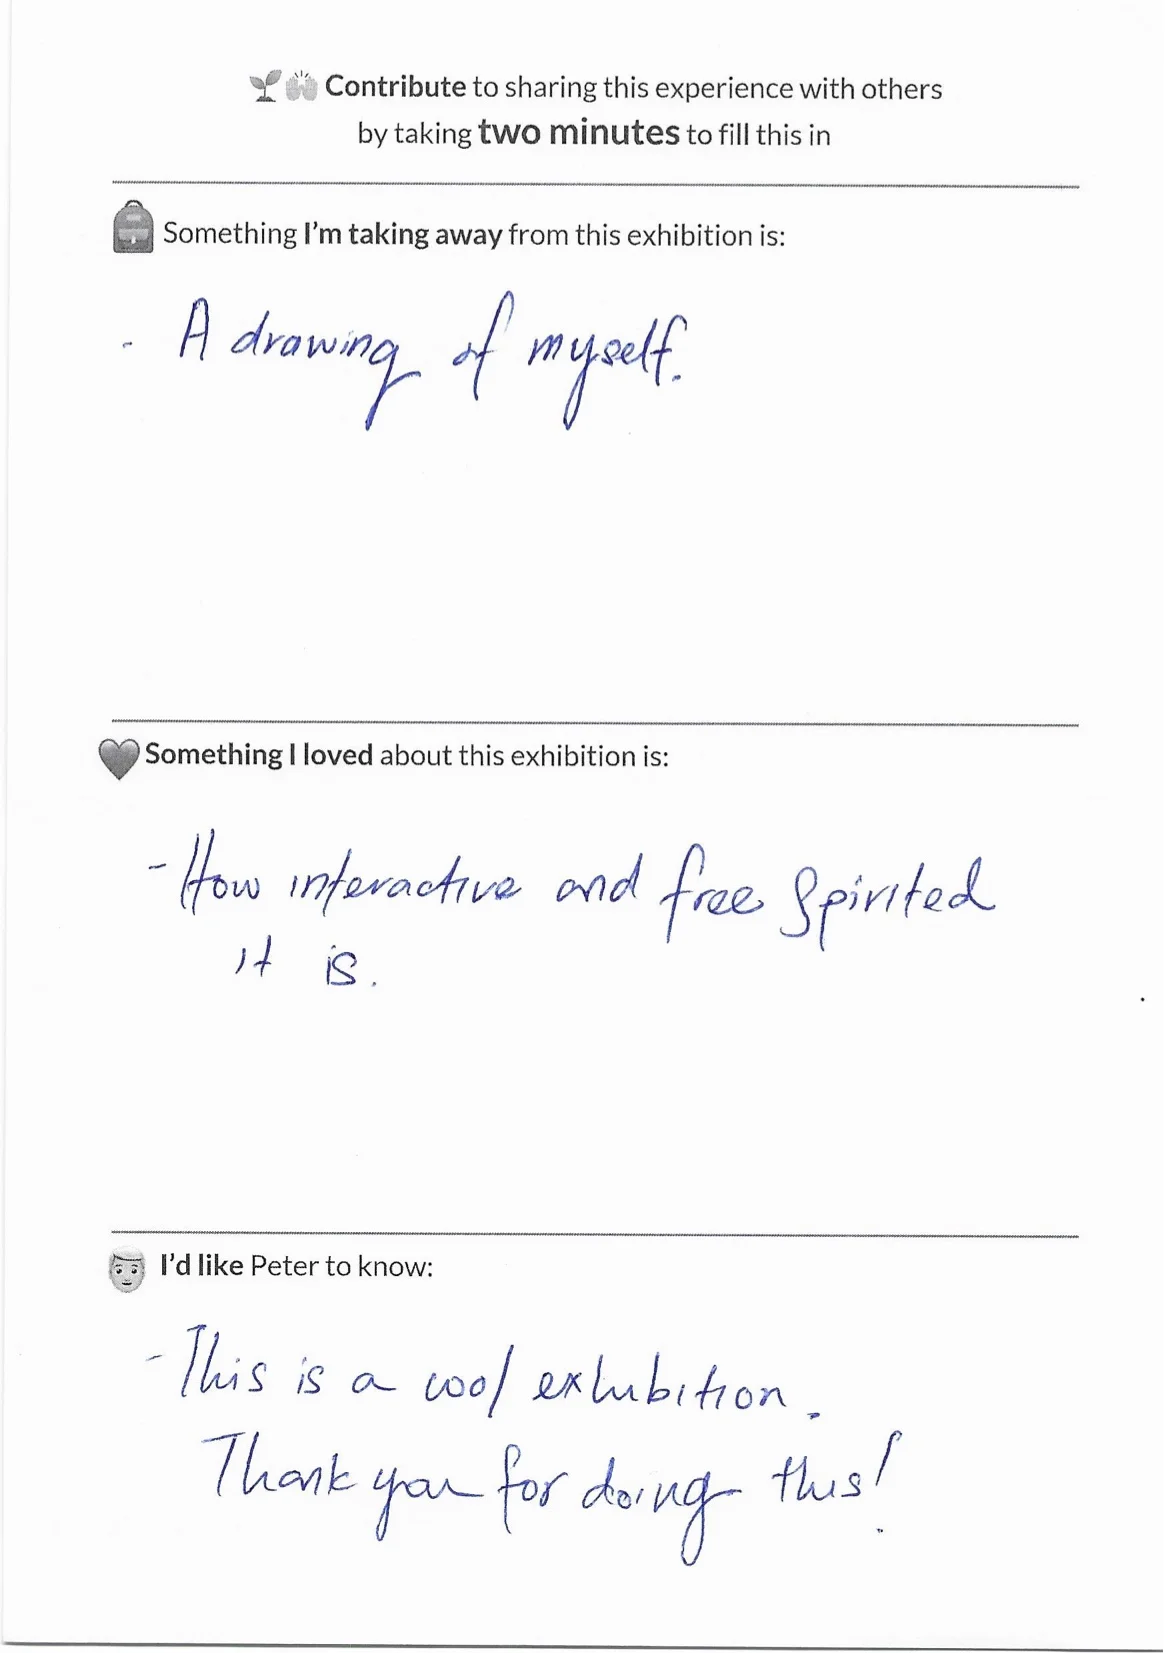 Contribute to sharing this experience with others
by taking two minutes to fill this in
Something I'm taking away from this exhibition is:
- A drawing of myself.
Something I loved about this exhibition is:
- How interactive and free spirited
it is.
I'd like Peter to know:
- This is a cool exhibition.
Thank you for doing this!